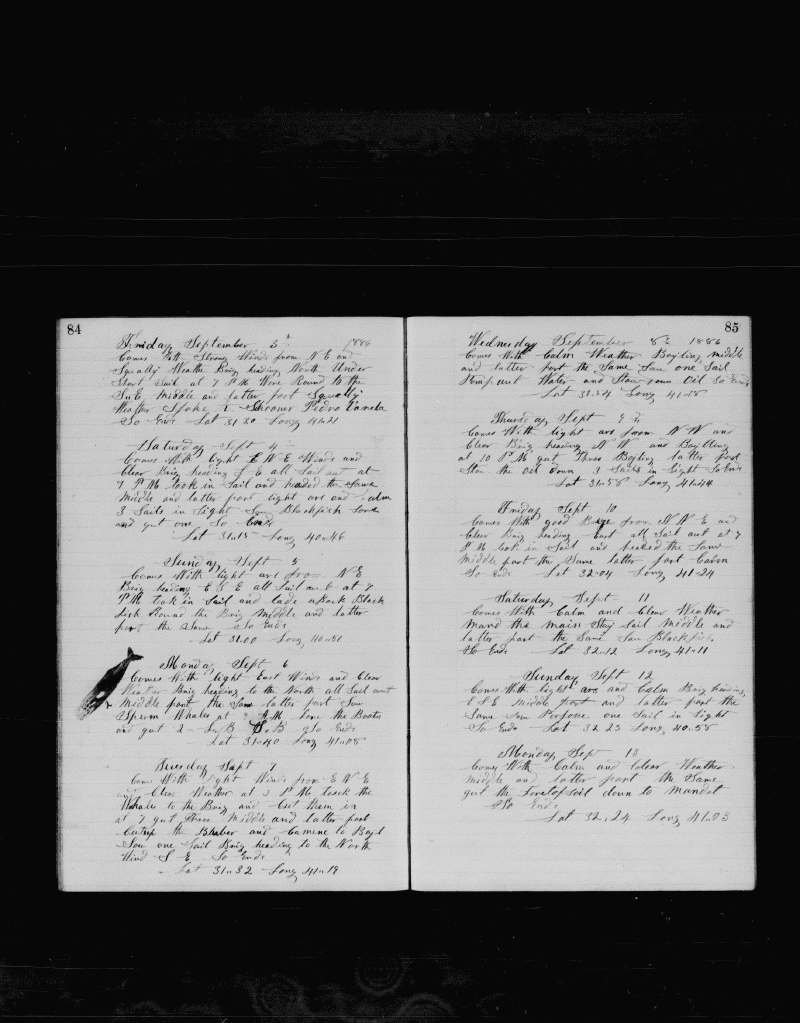 84
Friday September 3d 1886
Comes With Strong Winds from N E and
Squally Weathe Brig heading North Under
Short Sail at 7 P M Wore Round to the
Middle and latter part Squally
Weather Spoke Shooner Pedro Varela
So Ends Lat 31 30 Long 41-21
Saturday Sept 4
Comes With light E N E Winds and
Clear Brig heading S E all Sail out at
7 P M took in Sail and headed the Same
Middle and latter part light ars and Calm
3 Sails in Sight Saw Blackfish
and gut one So Ends
Lat 31-15 Long 40-46
Sunday Sept 5
Comes With light ars from N E
Brig heading E S E all Sail out at 7
P M took in Sail and Black
fish Round the Brig Middle and latter
part the Same So Ends
Lat 31-00 Long 40-51
Monday Sept 6
Comes With light East Winds and Clear
Weather Brig heading to the North all Sail out
Middle part the Same latter part Saw
Sperm Whales at M the Boats
and gut 2 So Ends
Lat 31-40 Long 41-05
Tuesday Sept 7
Come With light Winds from E N E
and Clear Weather at 3 P M took the
Whales to the Brig and Cut them in
at 7 gut Middle and latter part
the Blubber and to Boyl
Saw one Sail Brig heading to the North
Wind S E So Ends
Lat 31-32 Long 41-19
85
Wednesday September 8th 1886
Comes With Calm Weather Boyling middle
and latter part the Same Saw one Sail
Water and Oil So Ends
Lat 31-54 Long 41-18
Thursday Sept 9th
Comes With light ars from N W and
Clear Brig heading N W and Boylling
at 10 P M gut Threw Boyling latter part
Stow the oil down 3 Sails in Sight So Ends
Lat 31-58 Long 41-44
Friday Sept 10
Comes With good from N N E and
Clear Brig heading East all Sail out at 7
P M took in Sail and headed the Same
Middle part the Same latter part Calm
So Ends Lat 32-04 Long 41-24
Saturday Sept 11
Comes With Calm and Clear Weather
the main Stay Sail Middle and
latter part the Same Saw Blackfish
So Ends Lat 32-12 Long 41-11
Sunday Sept 12
Comes With light ars and Calm Brig heading
E S E Middle part and latter part the
Same Saw Porposse one Sail in Sight
So Ends Lat 32 23 Long 40-58
Monday Sept 13
Comes With Calm and Clear Weather
Middle and latter part the Same
gut the Foretopsail down to Mandit
So Ends
Lat 32-24 Long 41-03